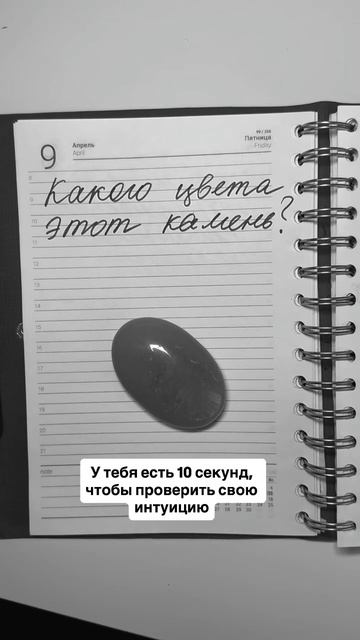 9
Апрель
April
99 / 266
Пятница
Friday
Какого цвета
этот камень?
8
9
10
11
12
13
14
15
16
17
18
19
20
21
note
У тебя есть 10 секунд,
чтобы проверить свою
интуицию